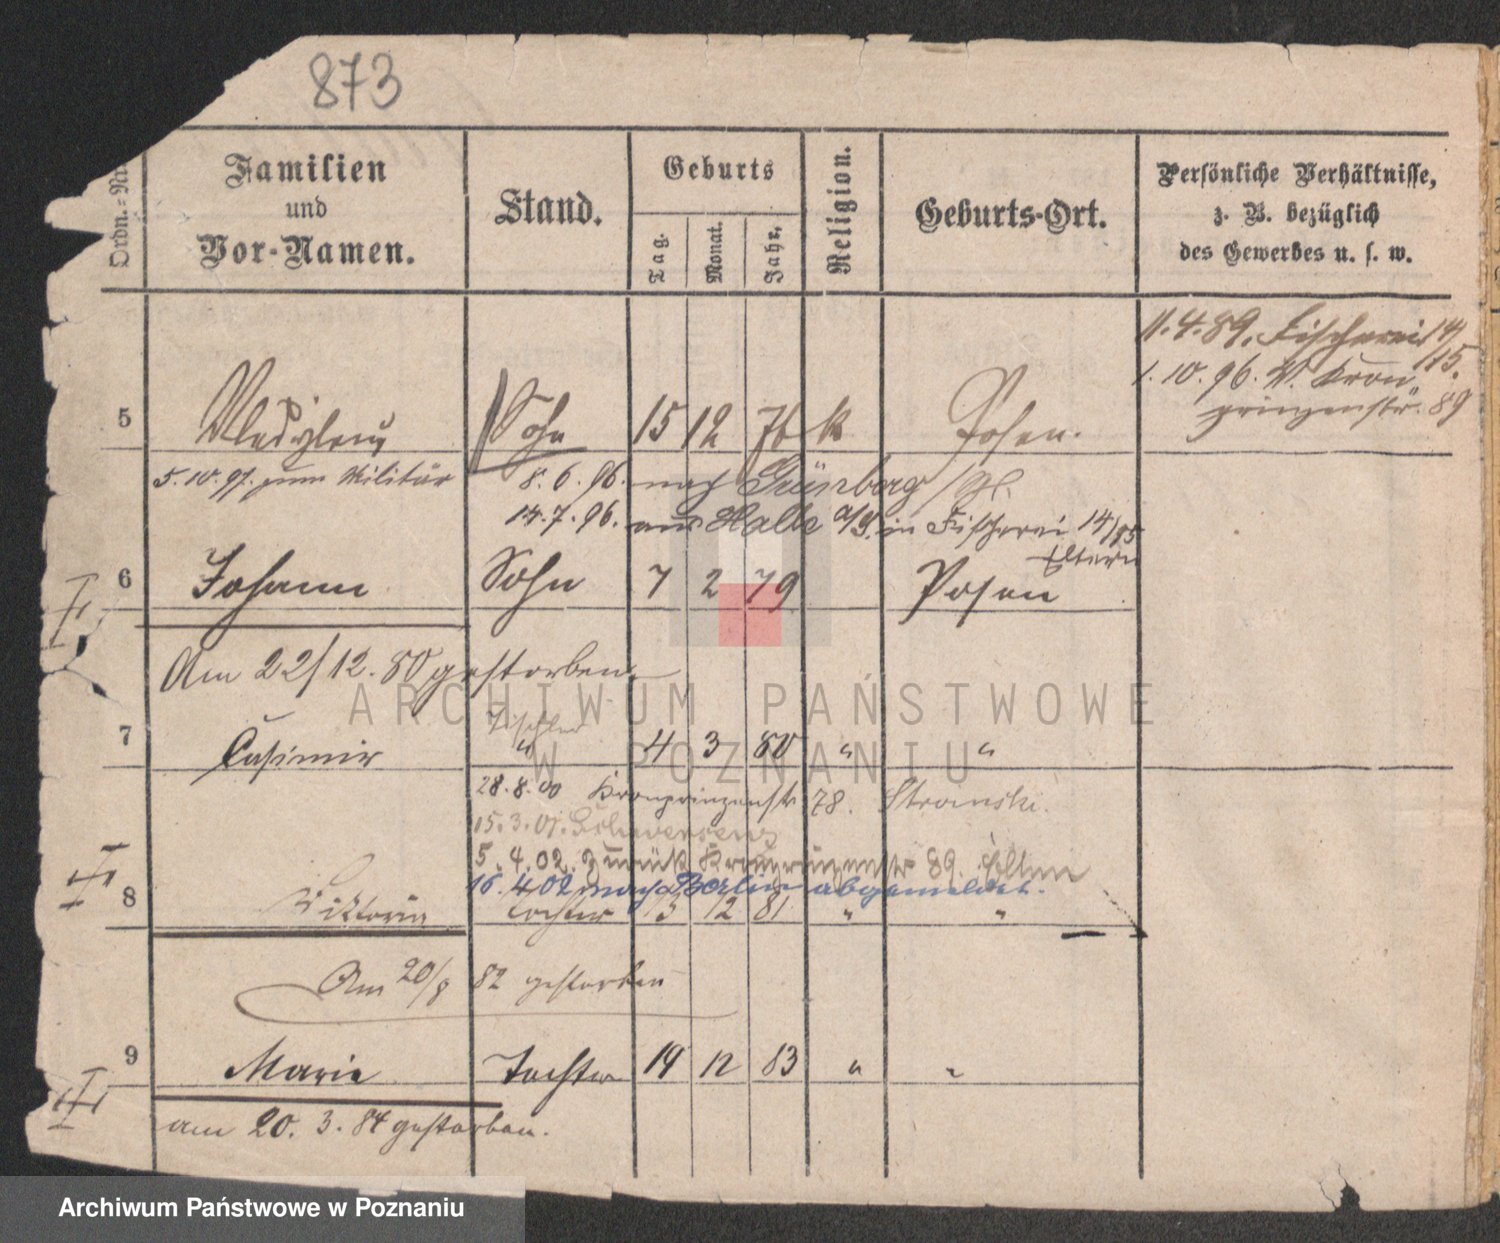 873
Ordn.-Nr.
Familien
und
Vor-Namen.
Stand.
Geburts
Tag.
Monat.
Jahr.
Religion.
Geburts-Ort.
Persönliche Verhältnisse,
z. B. bezüglich
des Gewerbes u. s. w.
11.4.89. Fischerei 14/15.
1.10.96. V. Kron
prinzenstr. 89
5 Sohn 15 12 76 k Posen.
5.10.97. zum Militär
8.6.96. nach Grünberg
14.7.96. aus Halle a/S. in Fischerei 14/15
Eltern
6 Johann Sohn 7 2 79 Posen
Am 22/12.80 gestorben.
Tischler
7 Casimir " 4 3 80 " "
28.8.00 Kronprinzenstr 78. Stranski.
15.3.01. Schwersenz
5.4.02. zurück Kronprinzenstr 89. Eltern
16.4.02 nach Berlin abgemeldet.
8 Viktoria Tochter 13 12 81 " "
Am 20/8 82 gestorben
9 Marie Tochter 19 12 83 " "
am 20.3.84 gestorben.
ARCHIWUM PAŃSTWOWE
W POZNANIU
Archiwum Państwowe w Poznaniu